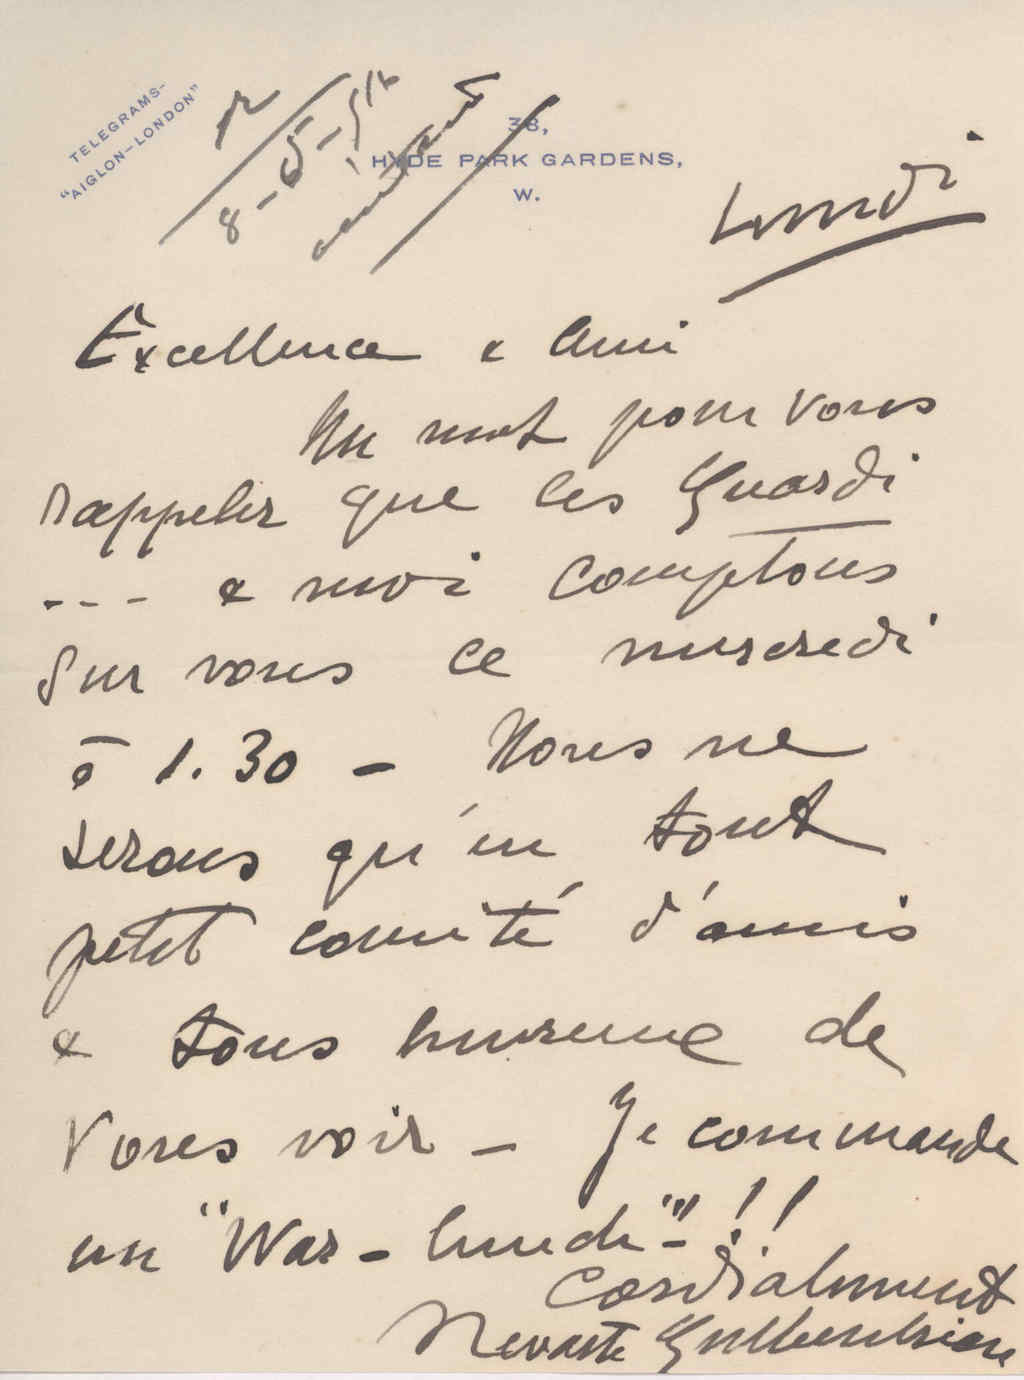 TELEGRAMS-
"AIGLON-LONDON"
38,
HYDE PARK GARDENS,
W.
Lundi
Excellence & Ami
Un mot pour vous
rappeler que les Guardi
--- & moi comptons
sur vous ce mercredi
à 1.30 - Nous ne
serons qu'en tout
petit comité d'amis
& tous heureux de
vous voir - Je commande
un "War-lunch"-!!
Cordialement
Nevarte Gulbenkian